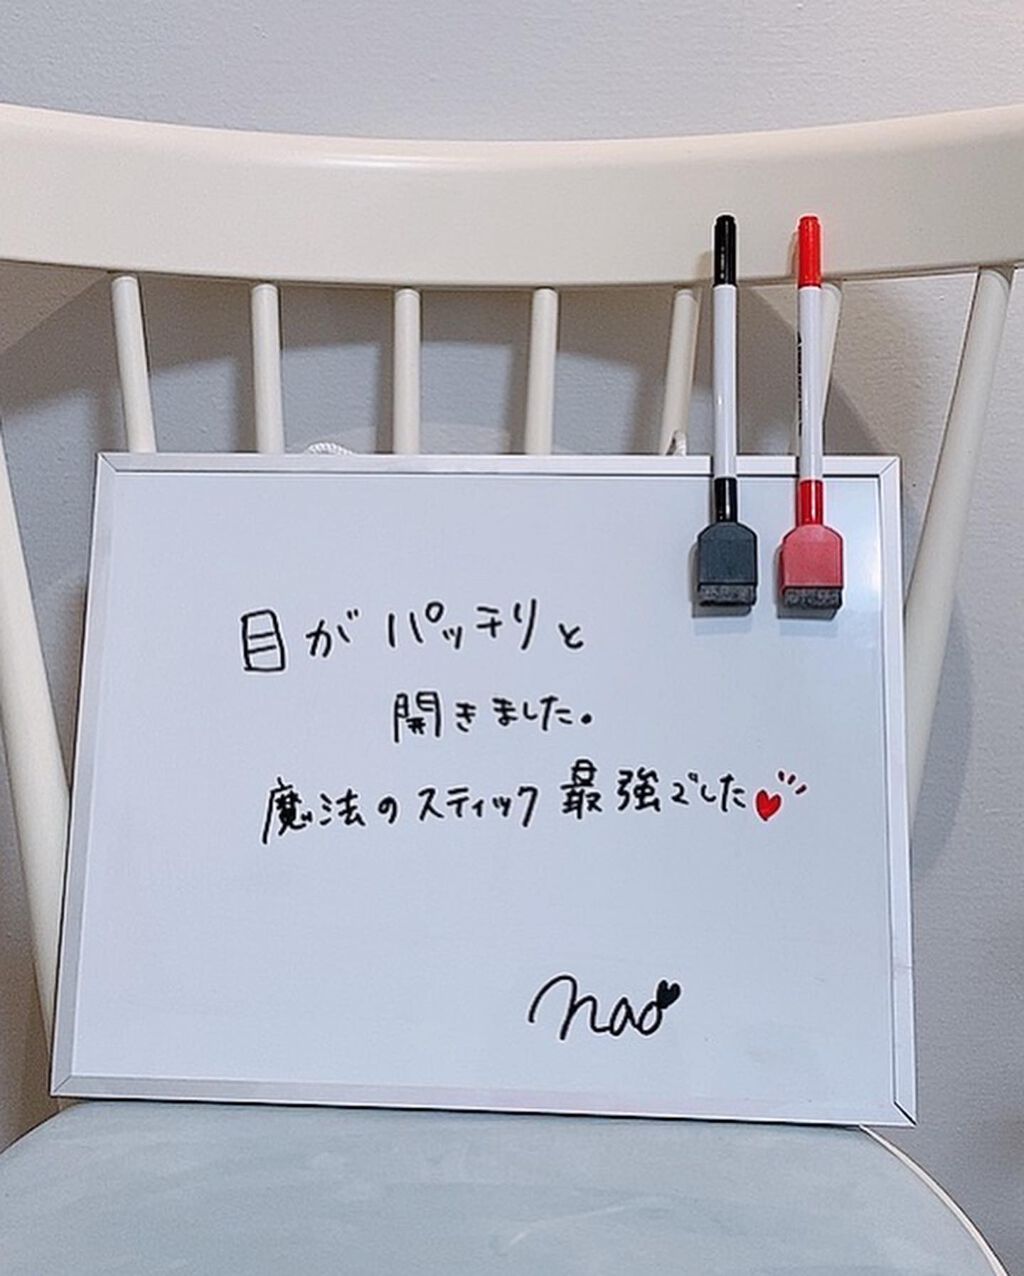 目がパッチリと
開きました。
魔法のスティック最強でした
nao